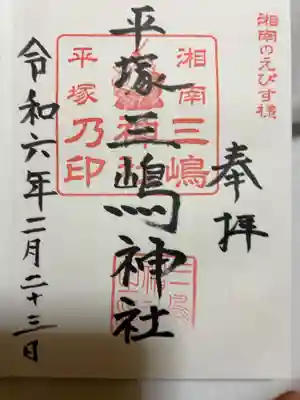 湘南のえびす様
奉拝
平塚三嶋神社
湘南三嶋
平塚乃印
令和六年二月二十三日